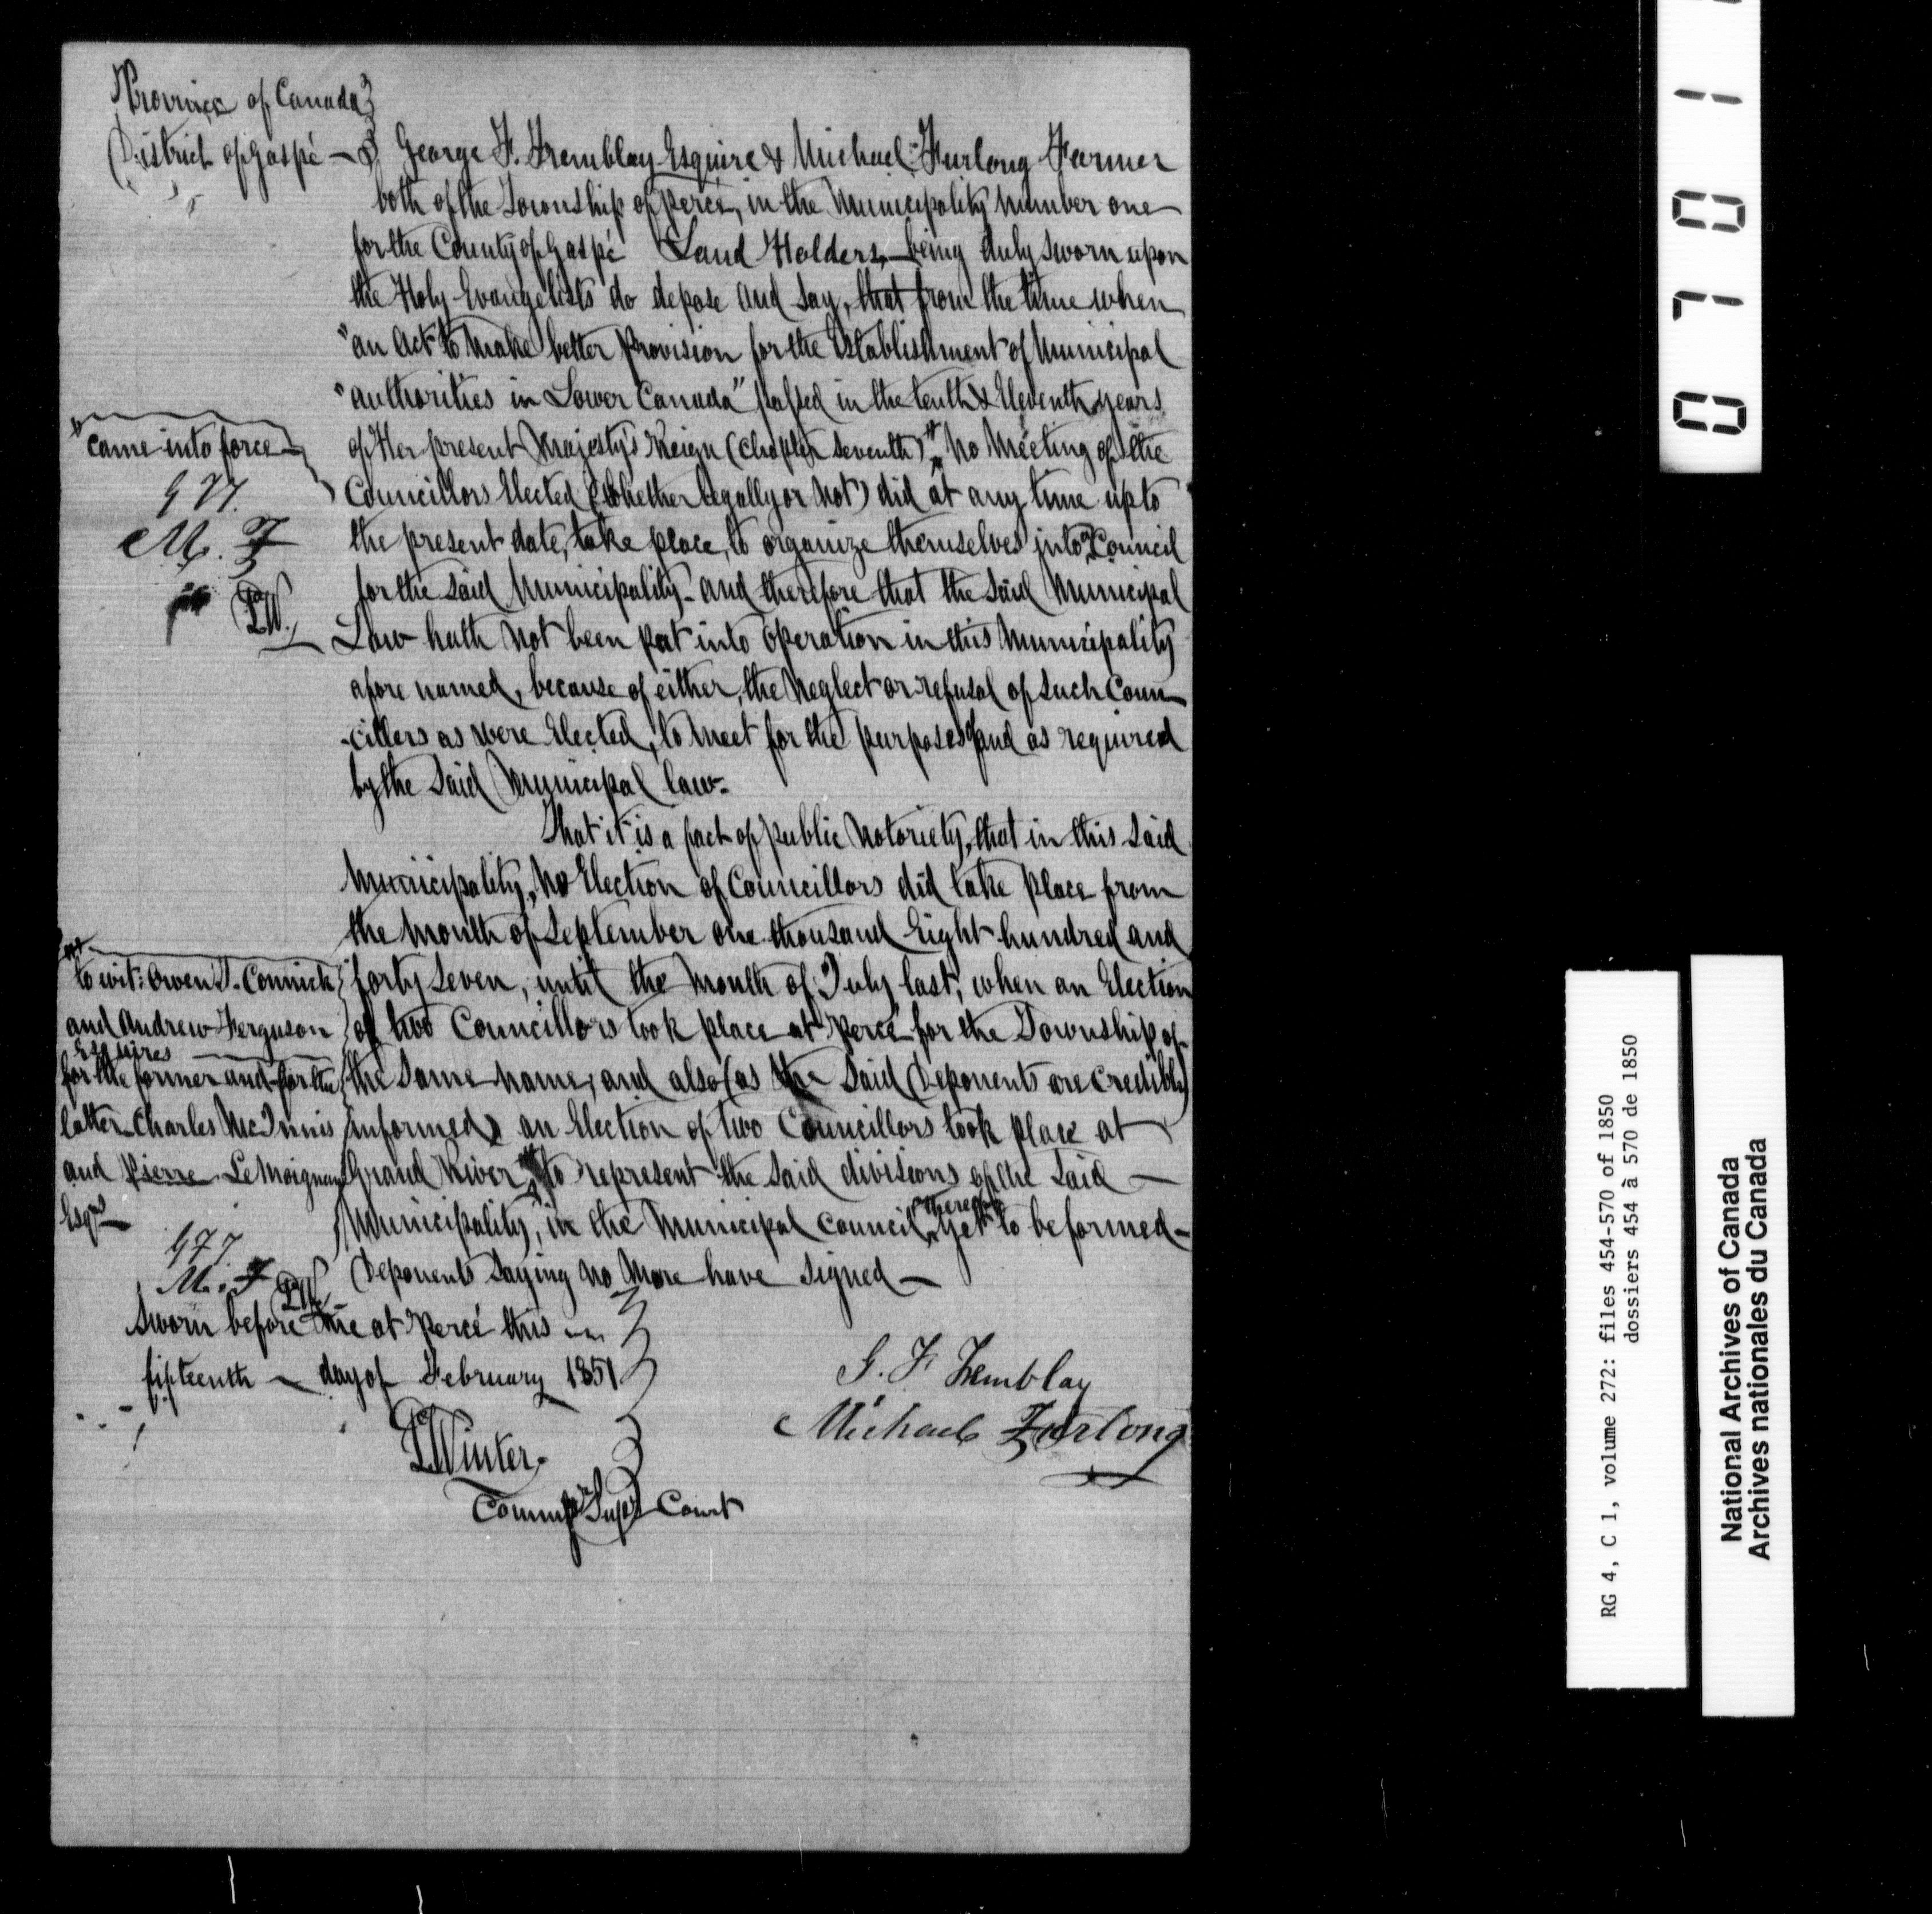 Province of Canada
District of Gaspé — George F. Tremblay Esquire & Michael Furlong Farmer
both of the Township of Percé, in the Municipality Number one
for the County of Gaspé Land Holders, being duly sworn upon
the Holy Evangelists do depose and say, that from the time when
"an Act to Make better provision for the Establishment of Municipal
"authorities in Lower Canada" passed in the tenth & Eleventh years
of Her present Majesty's Reign (Chapter Seventh) No Meeting of the
Councillors Elected (whether legally or not) did at any time up to
the present date, take place, to organize themselves into Council
for the said Municipality - and therefore that the said Municipal
Law hath not been put into operation in this Municipality
afore named, because of either, the Neglect or refusal of such Coun-
-cillers as were Elected, to meet for the purposes and as required
by the said Municipal law.
That it is a fact of public Notoriety, that in this said
Municipality, No Election of Councillors did take place from
the Month of September one thousand Eight hundred and
forty Seven, until the Month of July last, when an Election
of two Councillors took place at Percé for the Township of
the same name, and also (as the said Deponents are credibly
informed) an Election of two Councillors took place at
Grand River to represent the said divisions of the said —
Municipality, in the Municipal Council, yet to be formed -
Deponents saying no more have signed —
came into force
M. F
PW.
to wit: Owen T. Connick
and Andrew Ferguson
Esquires
for the former and for the
latter Charles McInnis
and Pierre LeMoignan
Esqrs
M. F
PW.
Sworn before me at Percé this
fifteenth — day of February 1851
G. F Tremblay
Michael Furlong
PWinter.
Commr Supr Court
0 7 0 1
RG 4, C 1, volume 272: files 454-570 of 1850
dossiers 454 à 570 de 1850
National Archives of Canada
Archives nationales du Canada